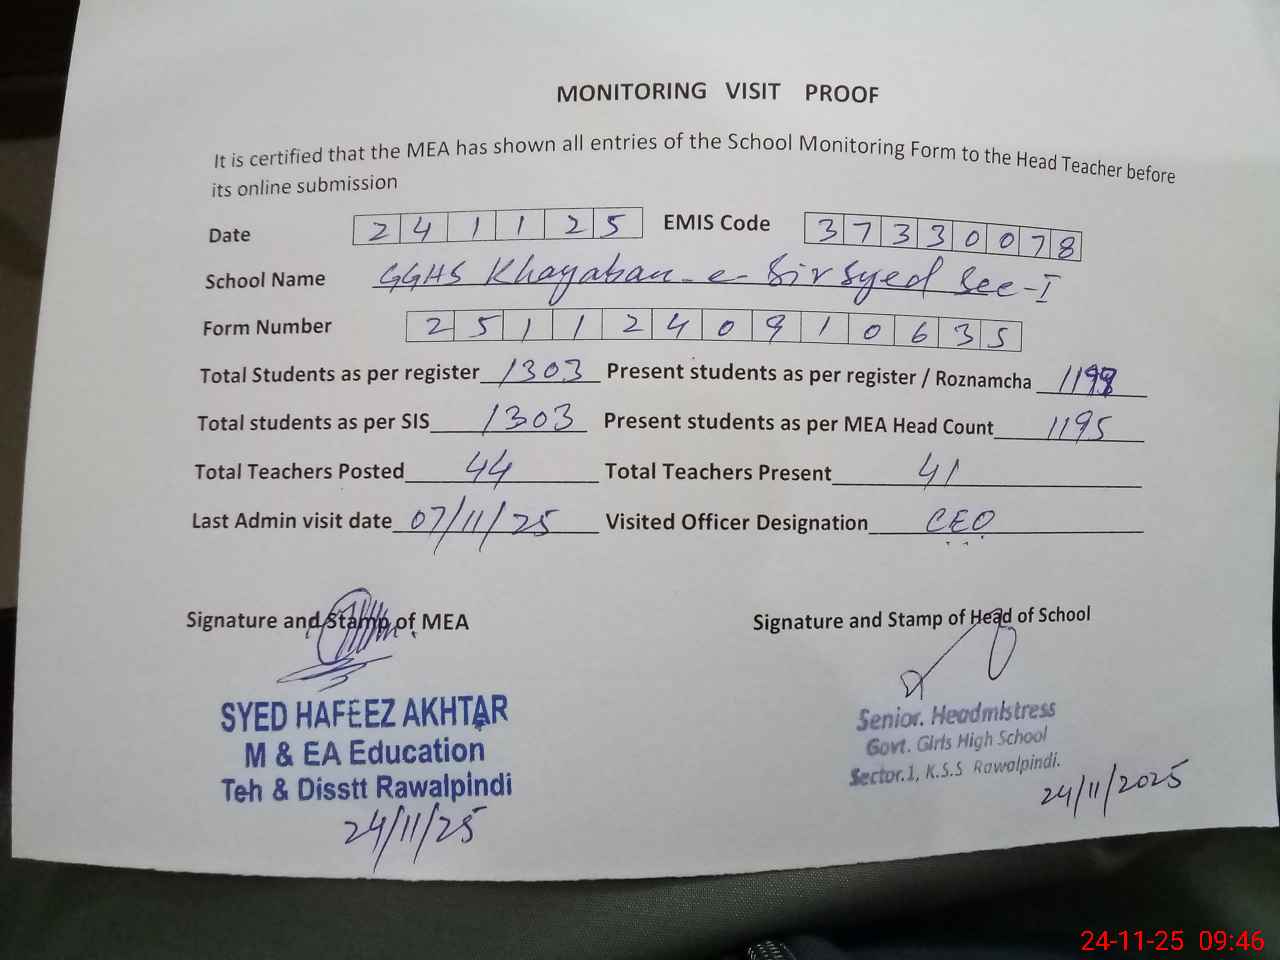 MONITORING VISIT PROOF
It is certified that the MEA has shown all entries of the School Monitoring Form to the Head Teacher before
its online submission
Date 2 4 1 1 2 5 EMIS Code 3 7 3 3 0 0 7 8
School Name GGHS Khayaban-e-Sir Syed Sec-I
Form Number 2 5 1 1 2 4 0 9 1 0 6 3 5
Total Students as per register 1303 Present students as per register / Roznamcha
Total students as per SIS 1303 Present students as per MEA Head Count 1195
Total Teachers Posted 44 Total Teachers Present 41
Last Admin visit date 07/11/25 Visited Officer Designation CEO
Signature and Stamp of MEA Signature and Stamp of Head of School
SYED HAFEEZ AKHTAR
M & EA Education
Teh & Disstt Rawalpindi
24/11/25
Senior. Headmistress
Govt. Girls High School
Sector.1, K.S.S Rawalpindi.
24/11/2025
24-11-25 09:46